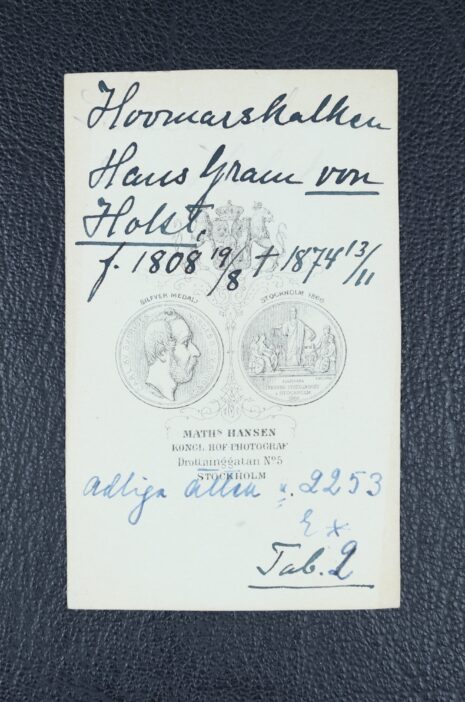 Hovmarskalken
Hans Gram von
Holst,
f. 1808 19/8 † 1874 13/11
SILFVER MEDALJ
STOCKHOLM 1866
MATHS HANSEN
KONGL. HOF-PHOTOGRAF
Drottninggatan No5
STOCKHOLM
Adliga ätten n. 2253
Tab. 2